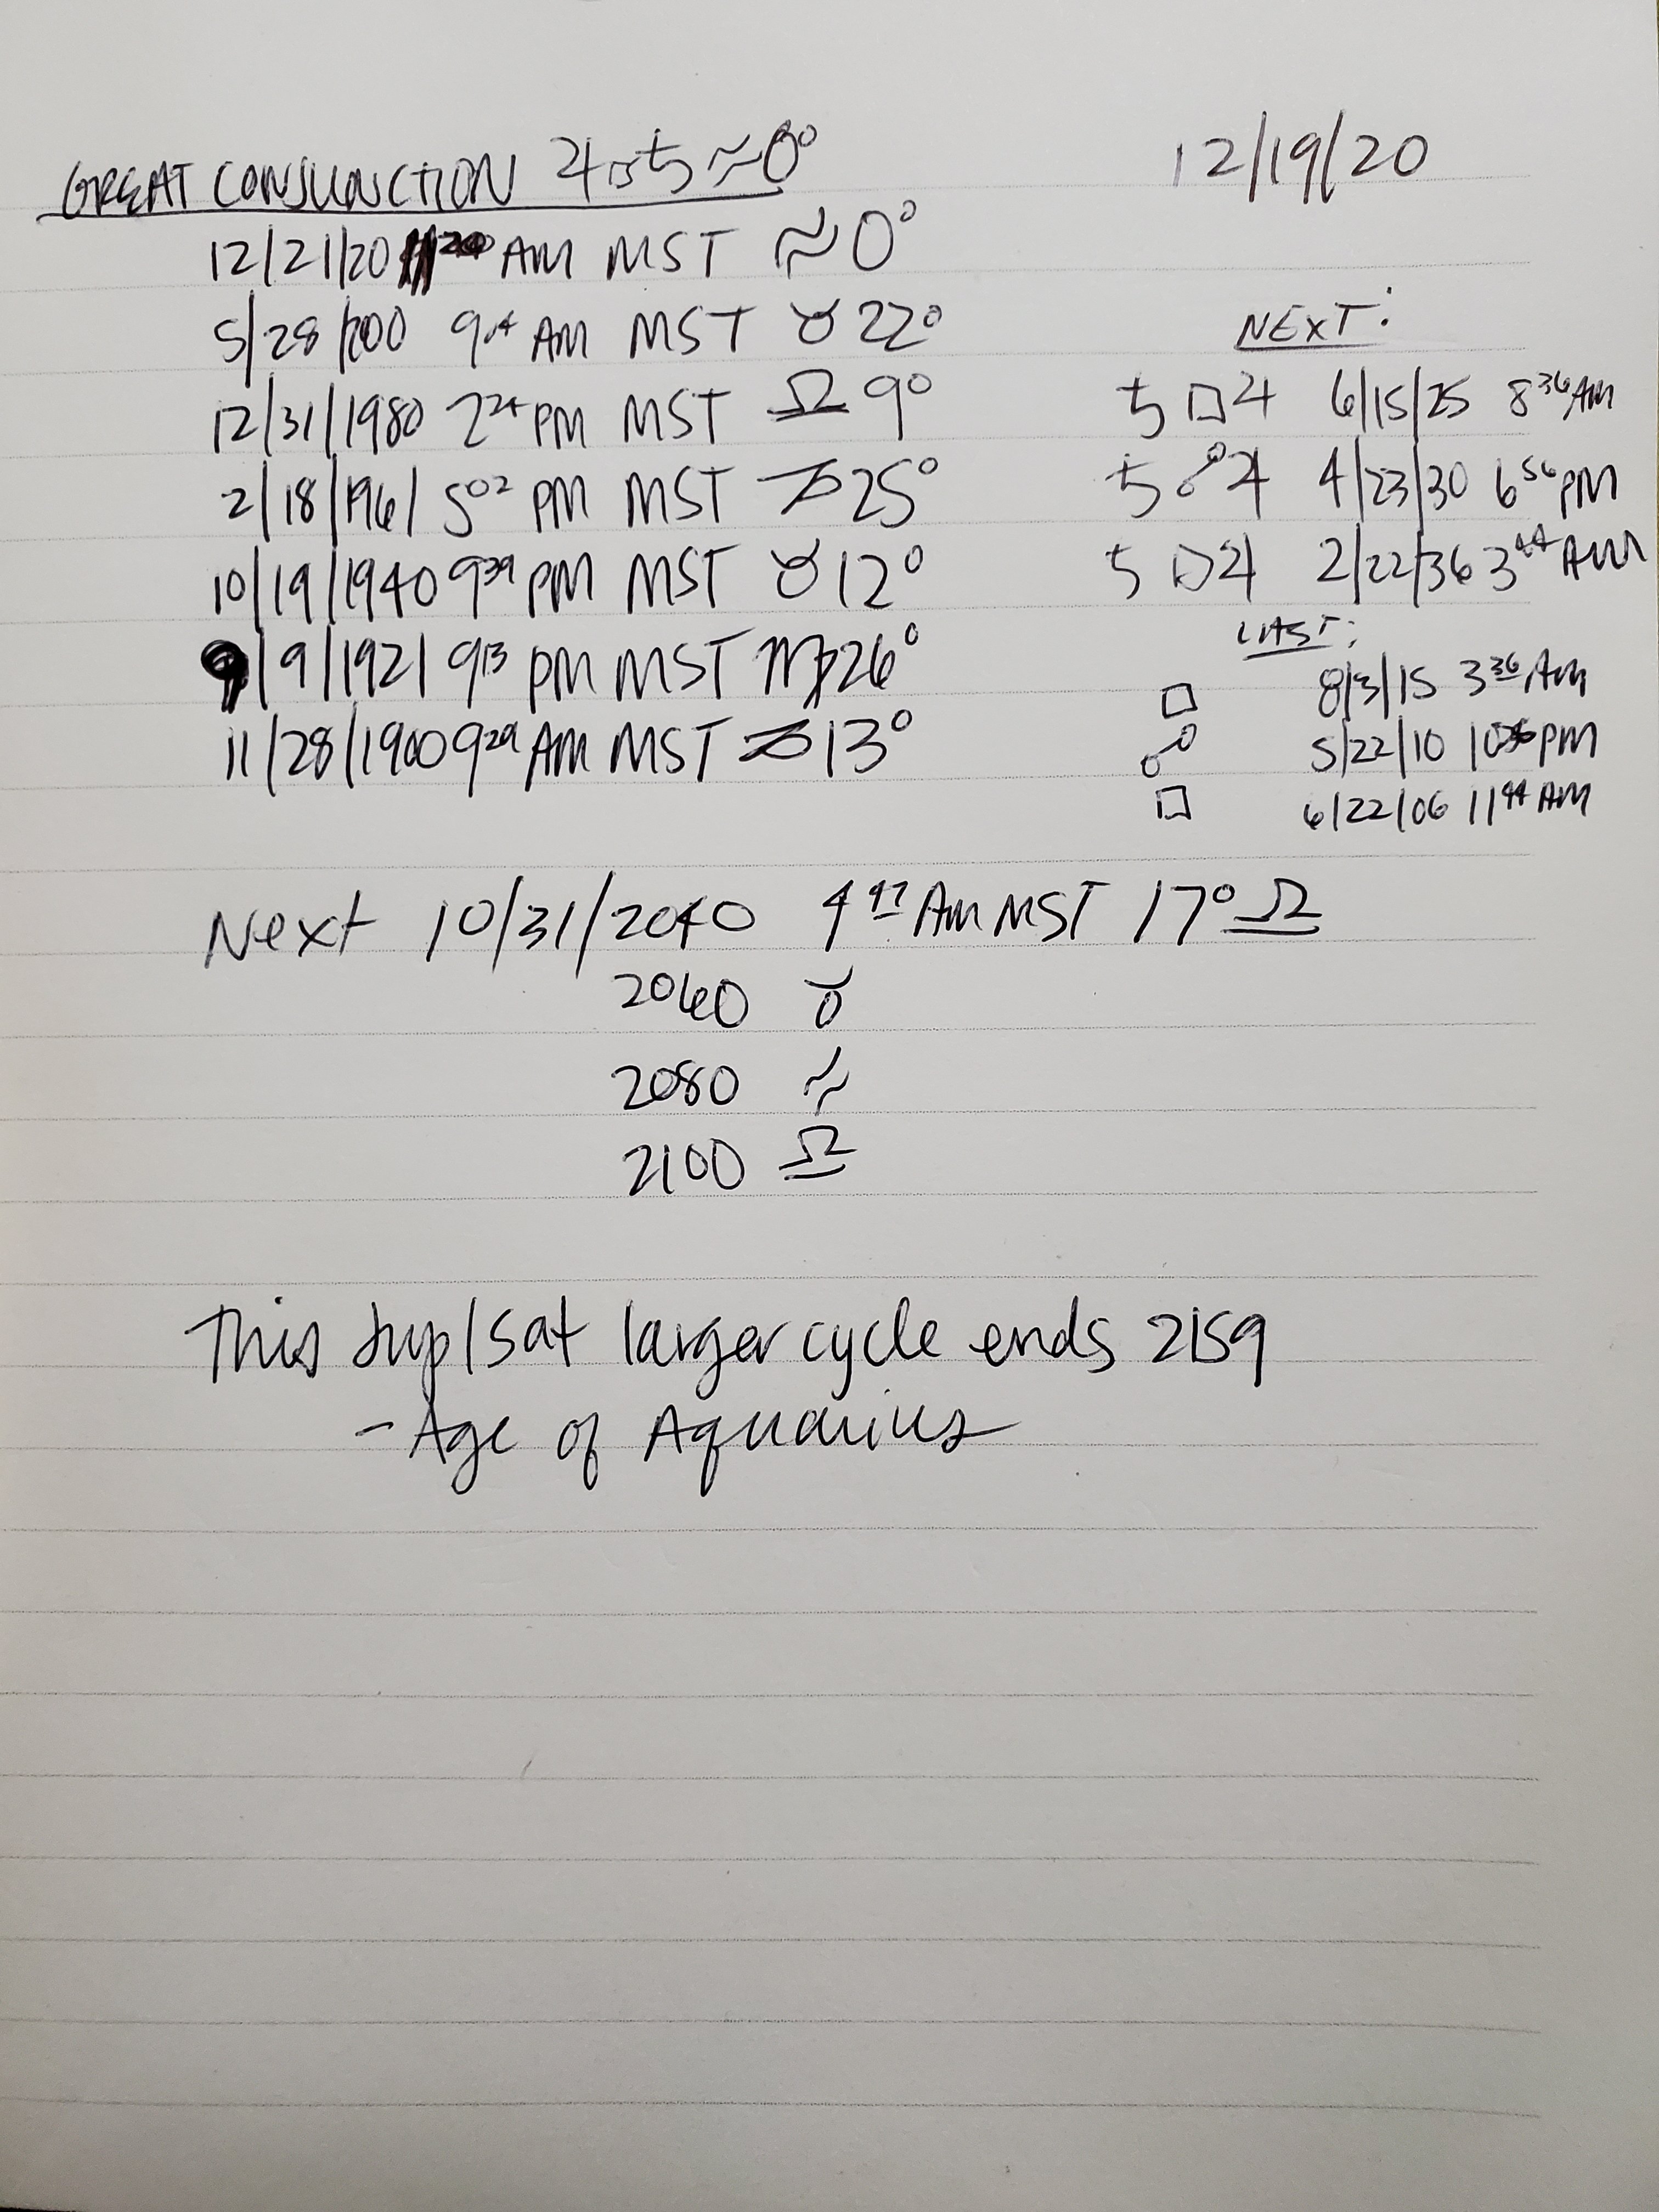 GREAT CONJUNCTION ♃☌♄ ♒0°
12/19/20
12/21/20 11²⁰ AM MST ♒0°
5/28/200 9⁰⁴ AM MST ♉22°
12/31/1980 2²⁴ PM MST ♎9°
2/18/1961 5⁰² PM MST ♑25°
10/19/1940 9³⁹ PM MST ♉12°
9/9/1921 9¹³ PM MST ♍26°
11/28/1900 9²⁹ AM MST ♑13°
NEXT:
♄□♃ 6/15/25 8³⁶ AM
♄☍♃ 4/23/30 6⁵⁶ PM
♄□♃ 2/22/36 3⁴⁴ AM
LAST:
□ 8/3/15 3³⁶ AM
☍ 5/22/10 10³⁶ PM
□ 6/22/06 11⁴⁴ AM
Next 10/31/2040 4⁴⁷ AM MST 17°♎
2060 ♉
2080 ♒
2100 ♎
This Jup/Sat larger cycle ends 2159
- Age of Aquarius